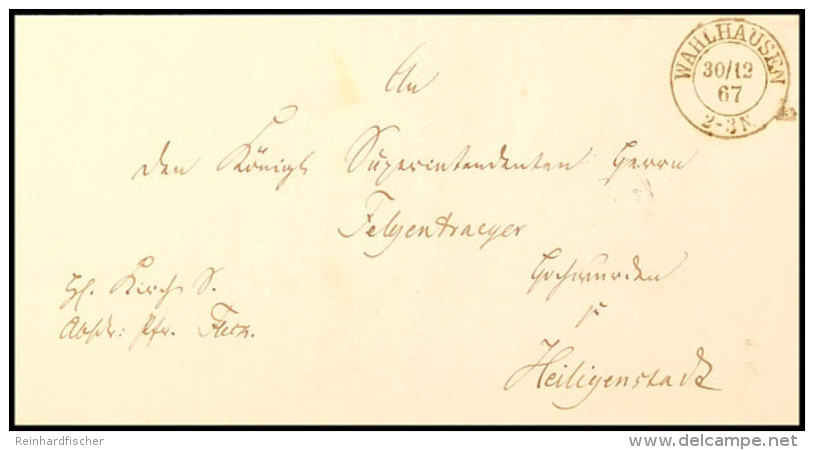 WAHLHAUSEN
30/12
67
2-3N.
An
den Königl. Superintendenten Herrn
Felgentraeger
Hochwürden
Kirch. S.
Absdr: Pfr.
Heiligenstadt
Reinhardfischer
www.delcampe.net